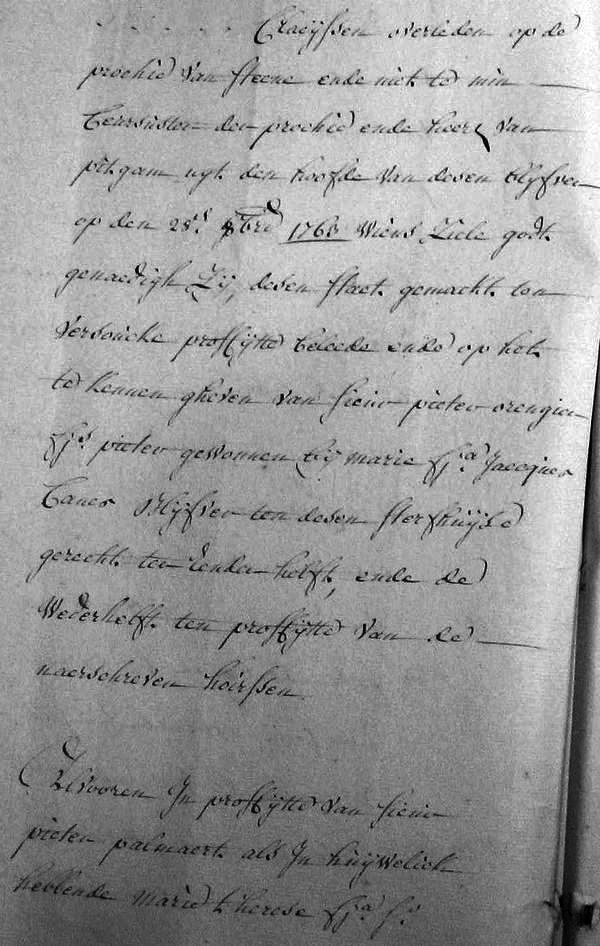 Claeijssen overleden op de
prochie van steene ende niet te min
den prochie ende heerl van
pitgam uyt den hoofde van desen blyfver
op den 28s. 9bre 1763 wiens ziele godt
genaedigh zij, desen staet gemackt ten
versoucke proffijtte beleede ende op het
te kennen gheven van sieur pieter orengier
fs. pieter gewonnen bij marie fa. Jacques
Canes Blijfver ten desen sterfhuijse
gerecht ter eender helft, ende de
Wederhelft ten proffijtte van de
naerschreven hoirssen
Alvooren In proffijtte van sieur
pieter palmaert als In huijwelick
hebbende marie therese fa. s.